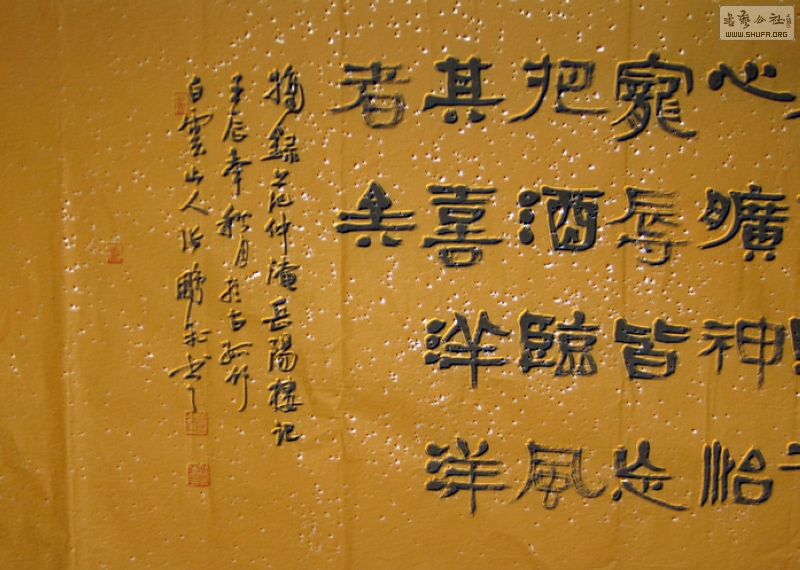 心曠神怡
寵辱皆忘
把酒臨風
其喜洋洋
者矣
摘録范仲淹岳陽樓記
壬辰年秋月於古孤竹
白雲山人張鵬飛書
書藝公社
WWW.SHUFA.ORG